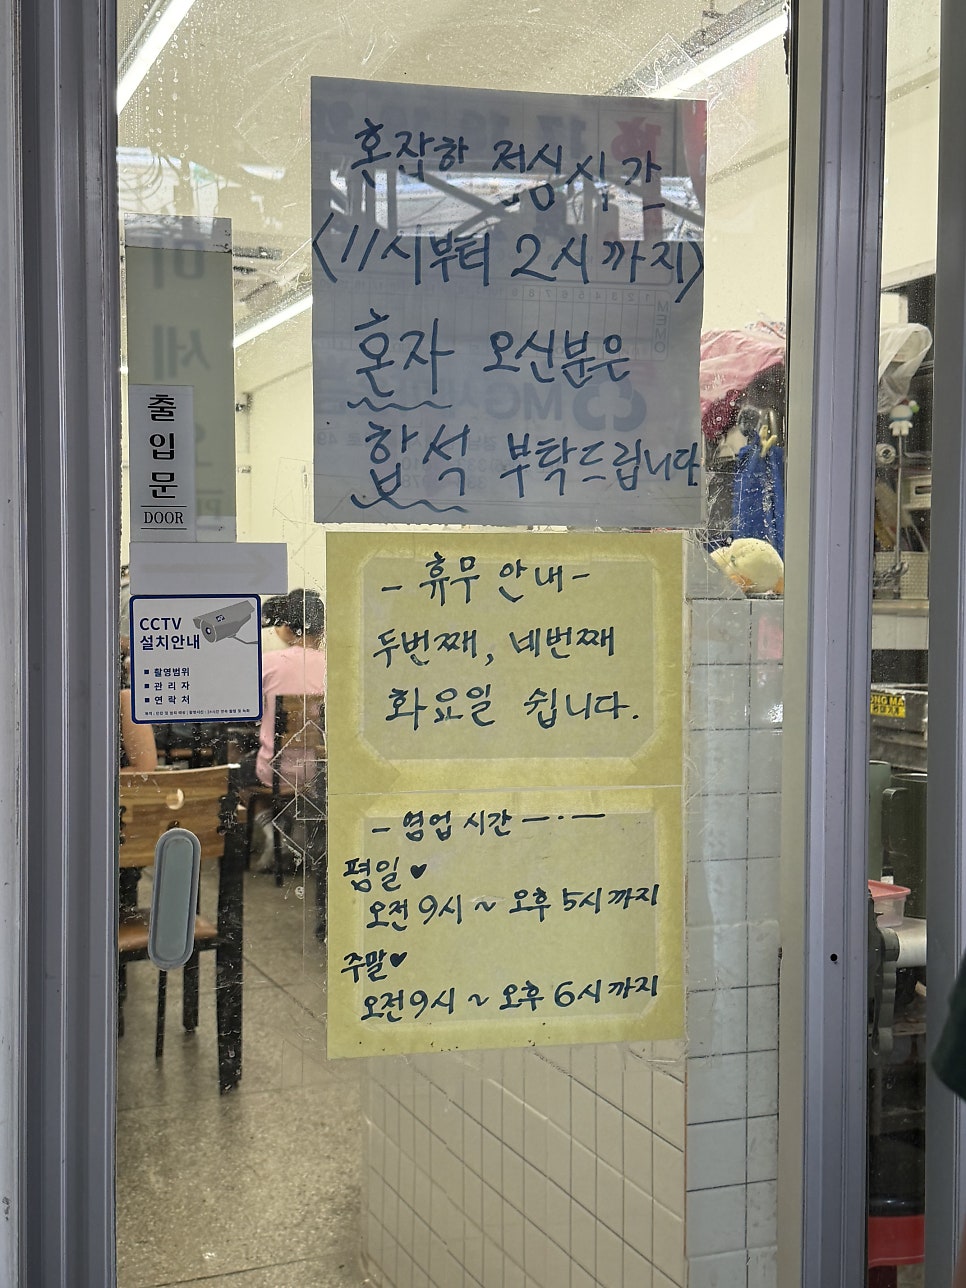 혼잡한 점심시간
<11시부터 2시까지>
혼자 오신분은
합석 부탁드립니다
- 휴무 안내-
두번째, 네번째
화요일 쉽니다.
- 영업 시간 -·-
평일♥
오전 9시 ~ 오후 5시까지
주말♥
오전9시 ~ 오후 6시까지
출
입
문
DOOR
CCTV
설치안내
■ 촬영범위
■ 관 리 자
■ 연 락 처